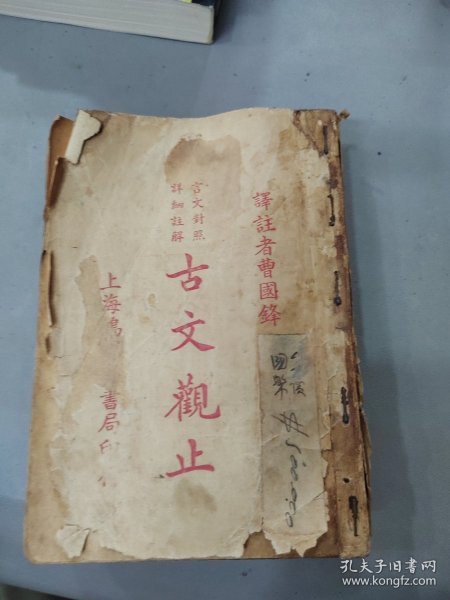 譯註者曹國鋒
言文對照
詳細註解
古文觀止
上海
書局印
孔夫子旧书网
www.kongfz.com